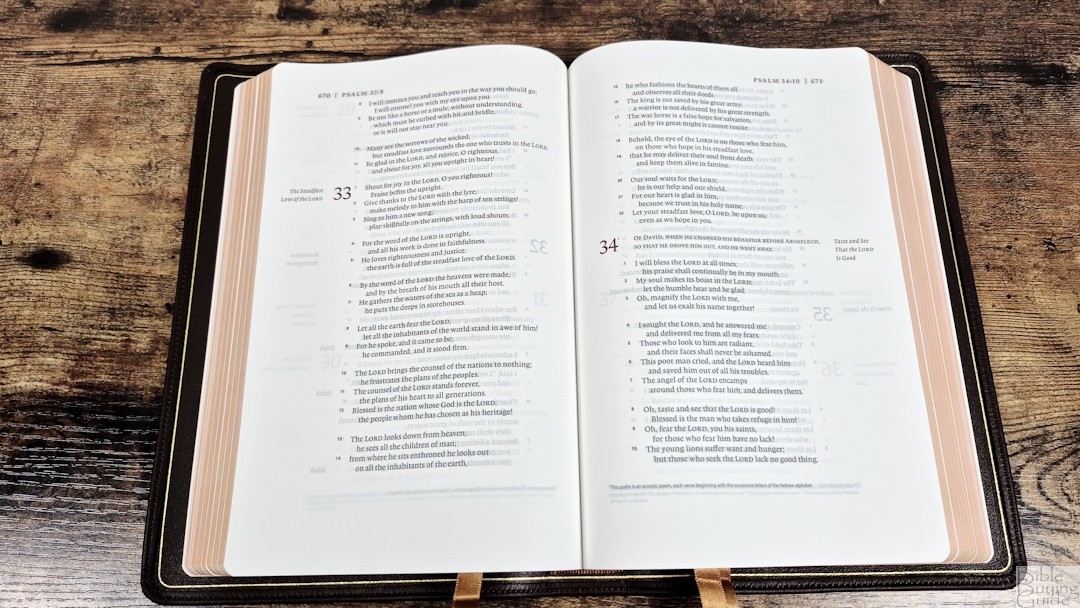 670 | PSALM 32:8
8 I will instruct you and teach you in the way you should go;
I will counsel you with my eye upon you.
9 Be not like a horse or a mule, without understanding,
which must be curbed with bit and bridle,
or it will not stay near you.
10 Many are the sorrows of the wicked,
but steadfast love surrounds the one who trusts in the LORD.
11 Be glad in the LORD, and rejoice, O righteous,
and shout for joy, all you upright in heart!
The Steadfast
Love of the LORD
33 Shout for joy in the LORD, O you righteous!
Praise befits the upright.
2 Give thanks to the LORD with the lyre;
make melody to him with the harp of ten strings!
3 Sing to him a new song;
play skillfully on the strings, with loud shouts.
4 For the word of the LORD is upright,
and all his work is done in faithfulness.
5 He loves righteousness and justice;
the earth is full of the steadfast love of the LORD.
6 By the word of the LORD the heavens were made,
and by the breath of his mouth all their host.
7 He gathers the waters of the sea as a heap;
he puts the deeps in storehouses.
8 Let all the earth fear the LORD;
let all the inhabitants of the world stand in awe of him!
9 For he spoke, and it came to be;
he commanded, and it stood firm.
10 The LORD brings the counsel of the nations to nothing;
he frustrates the plans of the peoples.
11 The counsel of the LORD stands forever,
the plans of his heart to all generations.
12 Blessed is the nation whose God is the LORD,
the people whom he has chosen as his heritage!
13 The LORD looks down from heaven;
he sees all the children of man;
14 from where he sits enthroned he looks out
on all the inhabitants of the earth,
PSALM 34:10 | 671
15 he who fashions the hearts of them all
and observes all their deeds.
16 The king is not saved by his great army;
a warrior is not delivered by his great strength.
17 The war horse is a false hope for salvation,
and by its great might it cannot rescue.
18 Behold, the eye of the LORD is on those who fear him,
on those who hope in his steadfast love,
19 that he may deliver their soul from death
and keep them alive in famine.
20 Our soul waits for the LORD;
he is our help and our shield.
21 For our heart is glad in him,
because we trust in his holy name.
22 Let your steadfast love, O LORD, be upon us,
even as we hope in you.
34 OF DAVID, WHEN HE CHANGED HIS BEHAVIOR BEFORE ABIMELECH,
SO THAT HE DROVE HIM OUT, AND HE WENT AWAY.
Taste and See
That the LORD
Is Good
1 I will bless the LORD at all times;
his praise shall continually be in my mouth.
2 My soul makes its boast in the LORD;
let the humble hear and be glad.
3 Oh, magnify the LORD with me,
and let us exalt his name together!
4 I sought the LORD, and he answered me
and delivered me from all my fears.
5 Those who look to him are radiant,
and their faces shall never be ashamed.
6 This poor man cried, and the LORD heard him
and saved him out of all his troubles.
7 The angel of the LORD encamps
around those who fear him, and delivers them.
8 Oh, taste and see that the LORD is good!
Blessed is the man who takes refuge in him!
9 Oh, fear the LORD, you his saints,
for those who fear him have no lack!
10 The young lions suffer want and hunger;
but those who seek the LORD lack no good thing.
This psalm is an acrostic poem, each verse beginning with the successive letters of the Hebrew alphabet
Bible
Buying
Guide